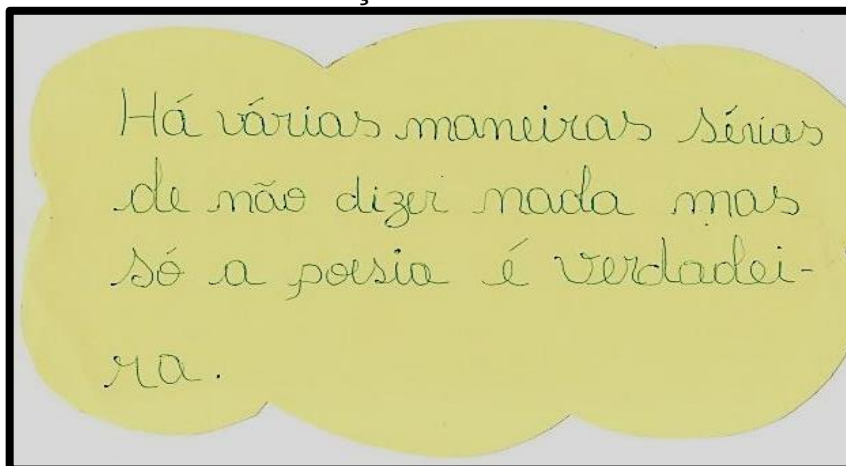 Há várias maneiras sérias
de não dizer nada mas
só a poesia é verdadei-
ra.